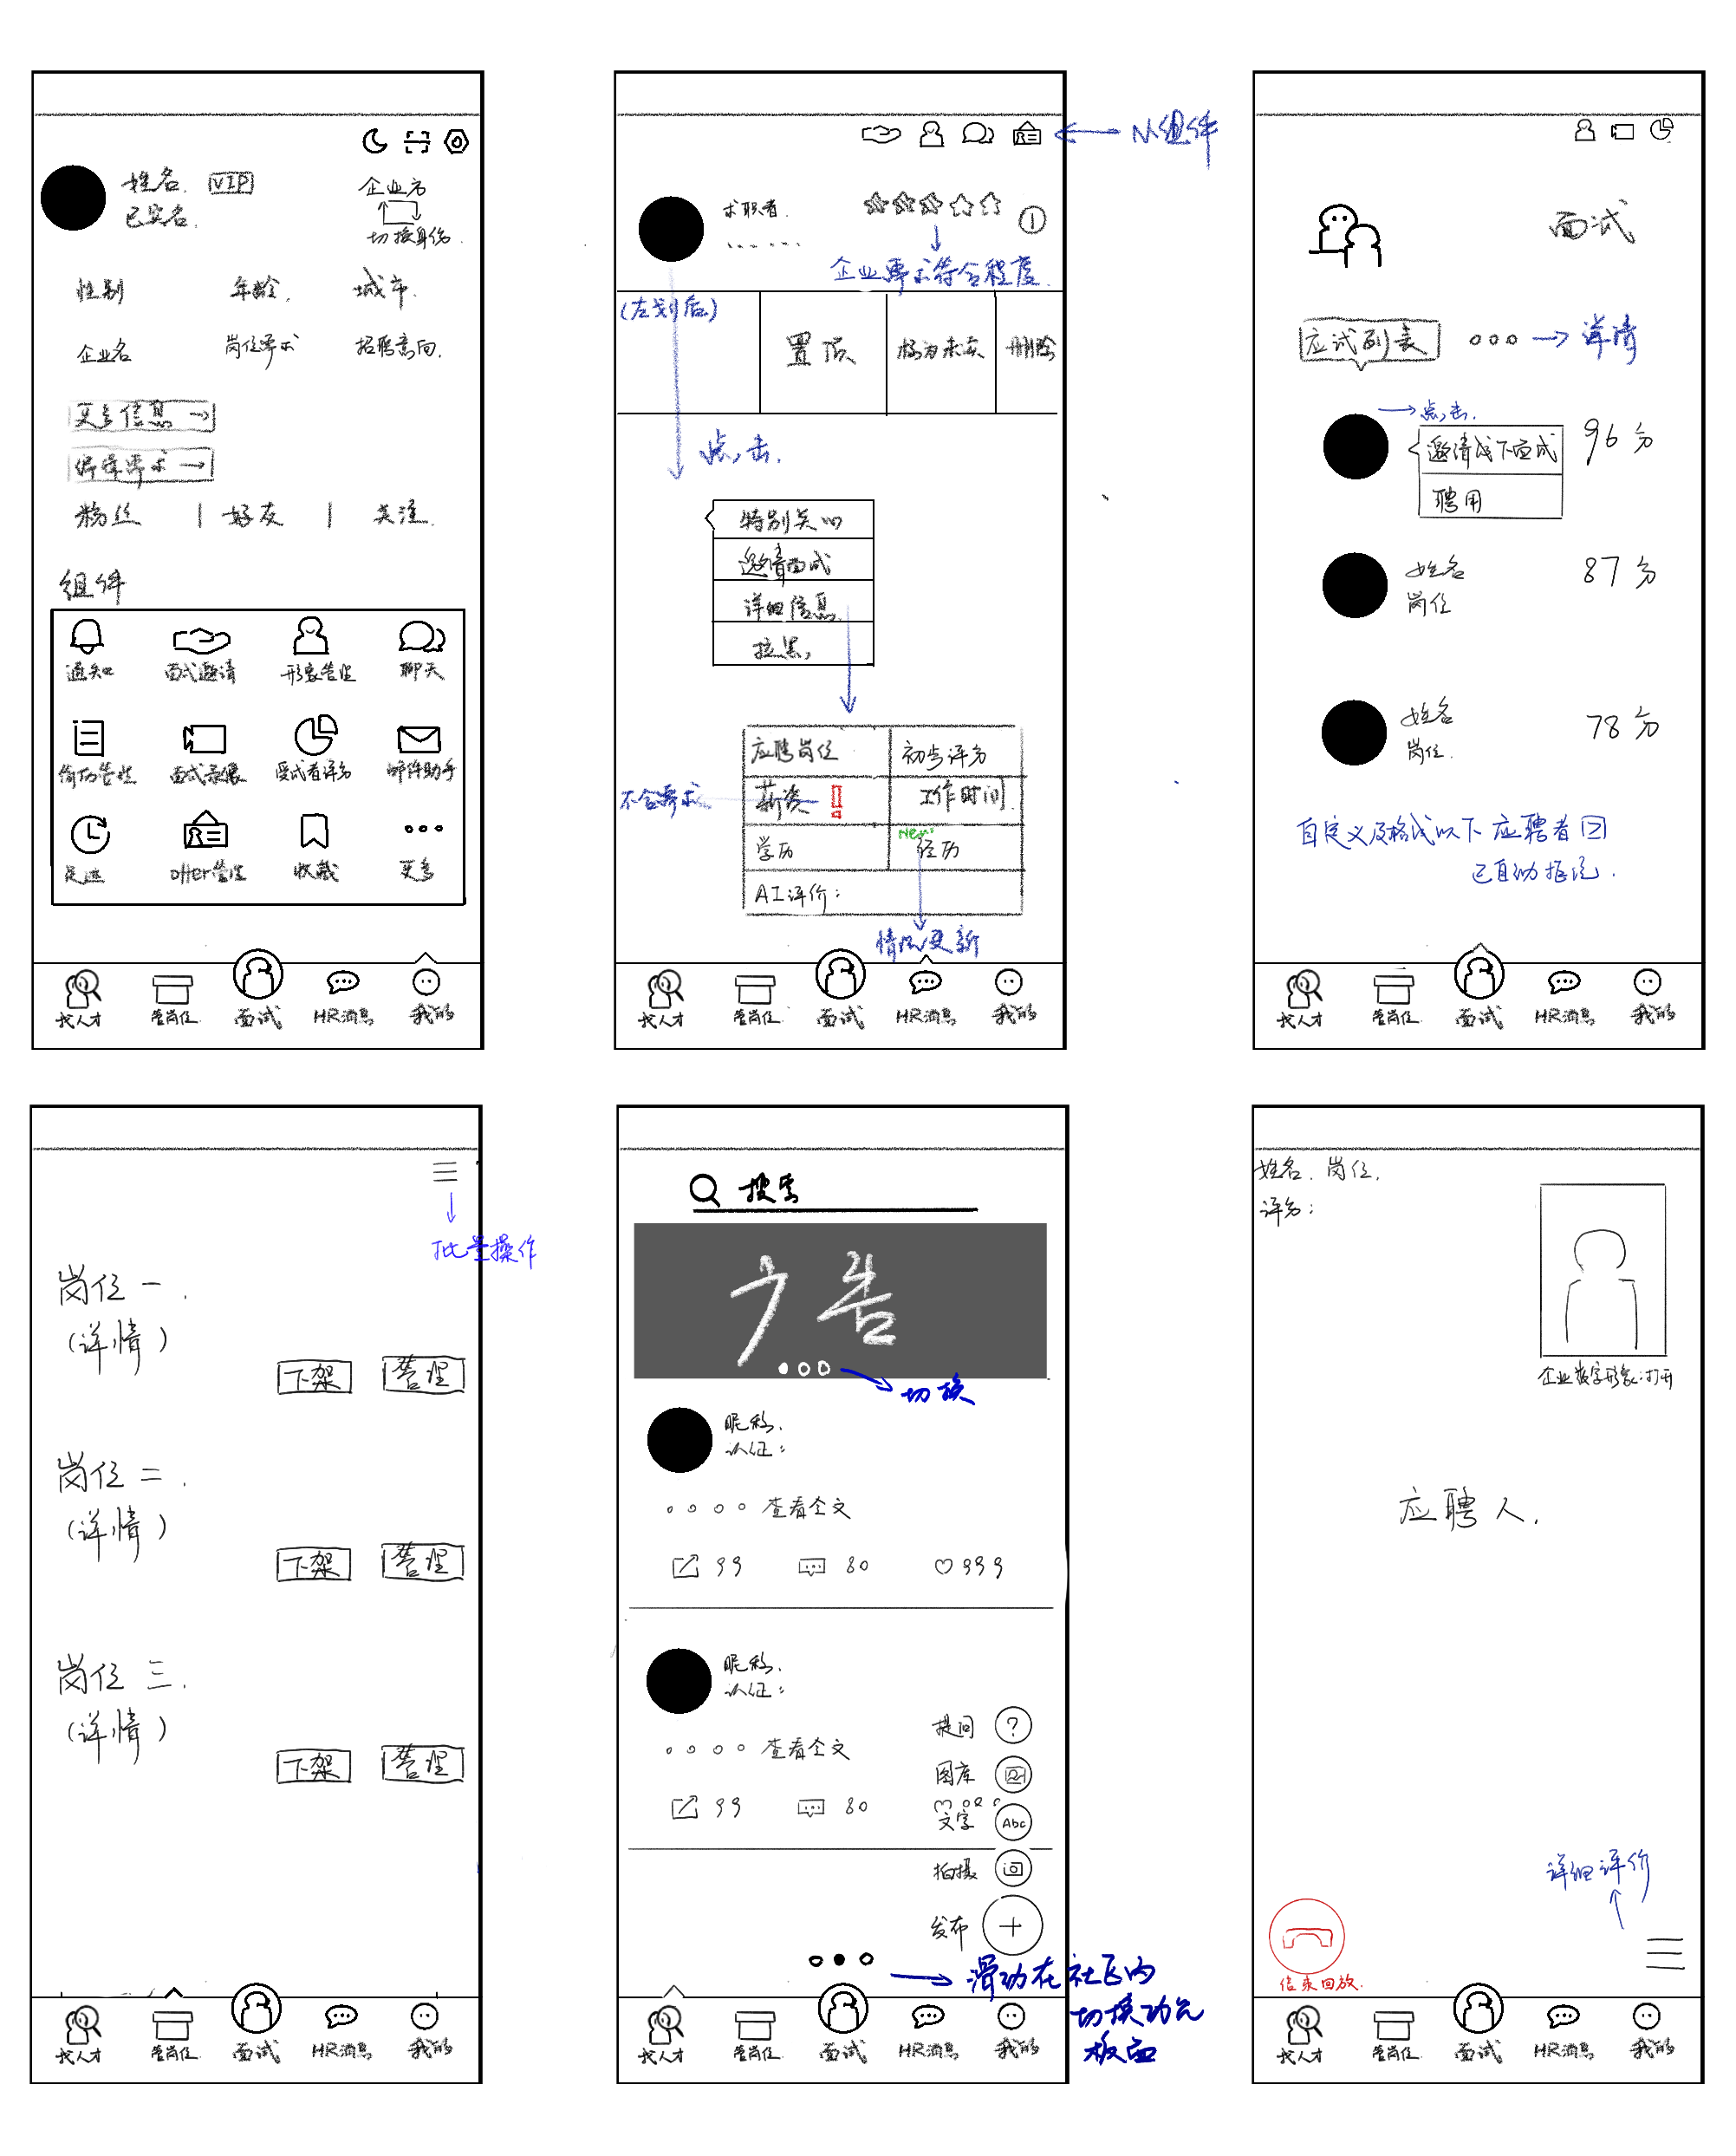 姓名. VIP
已实名.
企业方
切换身份.
性别 年龄. 城市.
企业名 岗位要求 招聘意向.
更多信息 →
粉丝 | 好友 | 关注.
组件
通知 面试邀请 形象管理 聊天
简历管理 面试录像 受试者评分 邮件助手
足迹 offer管理 收藏 更多
找人才 管岗位 面试 HR消息 我的
小组件
求职者.
企业要求符合程度.
(左划后)
置顶 标为未读 删除
点击.
特别关心
邀请面试
详细信息
拉黑
应聘岗位 初步评分
不合要求 薪资 !! 工作时间
New
学历 经历
AI评价:
情况更新
找人才 管岗位 面试 HR消息 我的
面试
应试列表 → 详情
→点击.
邀请线下应试 96分
聘用
姓名 87分
岗位
姓名 78分
岗位.
自定义及格线以下 应聘者
已自动拒绝.
找人才 管岗位 面试 HR消息 我的
批量操作
岗位一.
(详情)
下架 管理
岗位二.
(详情)
下架 管理
岗位三.
(详情)
下架 管理
找人才 管岗位 面试 HR消息 我的
搜索
广告
切换
昵称.
认证:
查看全文
99 80 999
昵称.
认证:
提问 ?
查看全文
图库
99 80
文字 Abc
拍摄
发布 +
滑动在社区内
切换功能
板面
找人才 管岗位 面试 HR消息 我的
姓名. 岗位.
评分:
企业数字形象:打开
应聘人.
详细评价
结束回放.
找人才 管岗位 面试 HR消息 我的